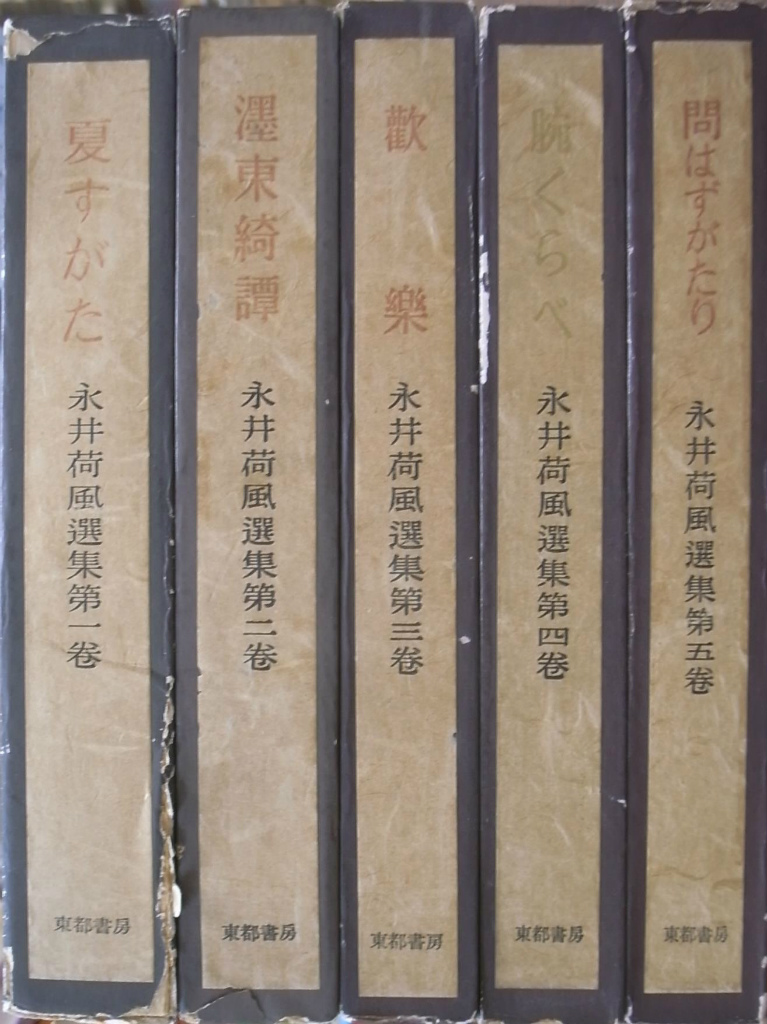 夏すがた
永井荷風選集第一卷
東都書房
濹東綺譚
永井荷風選集第二卷
東都書房
歡樂
永井荷風選集第三卷
東都書房
腕くらべ
永井荷風選集第四卷
東都書房
問はずがたり
永井荷風選集第五卷
東都書房